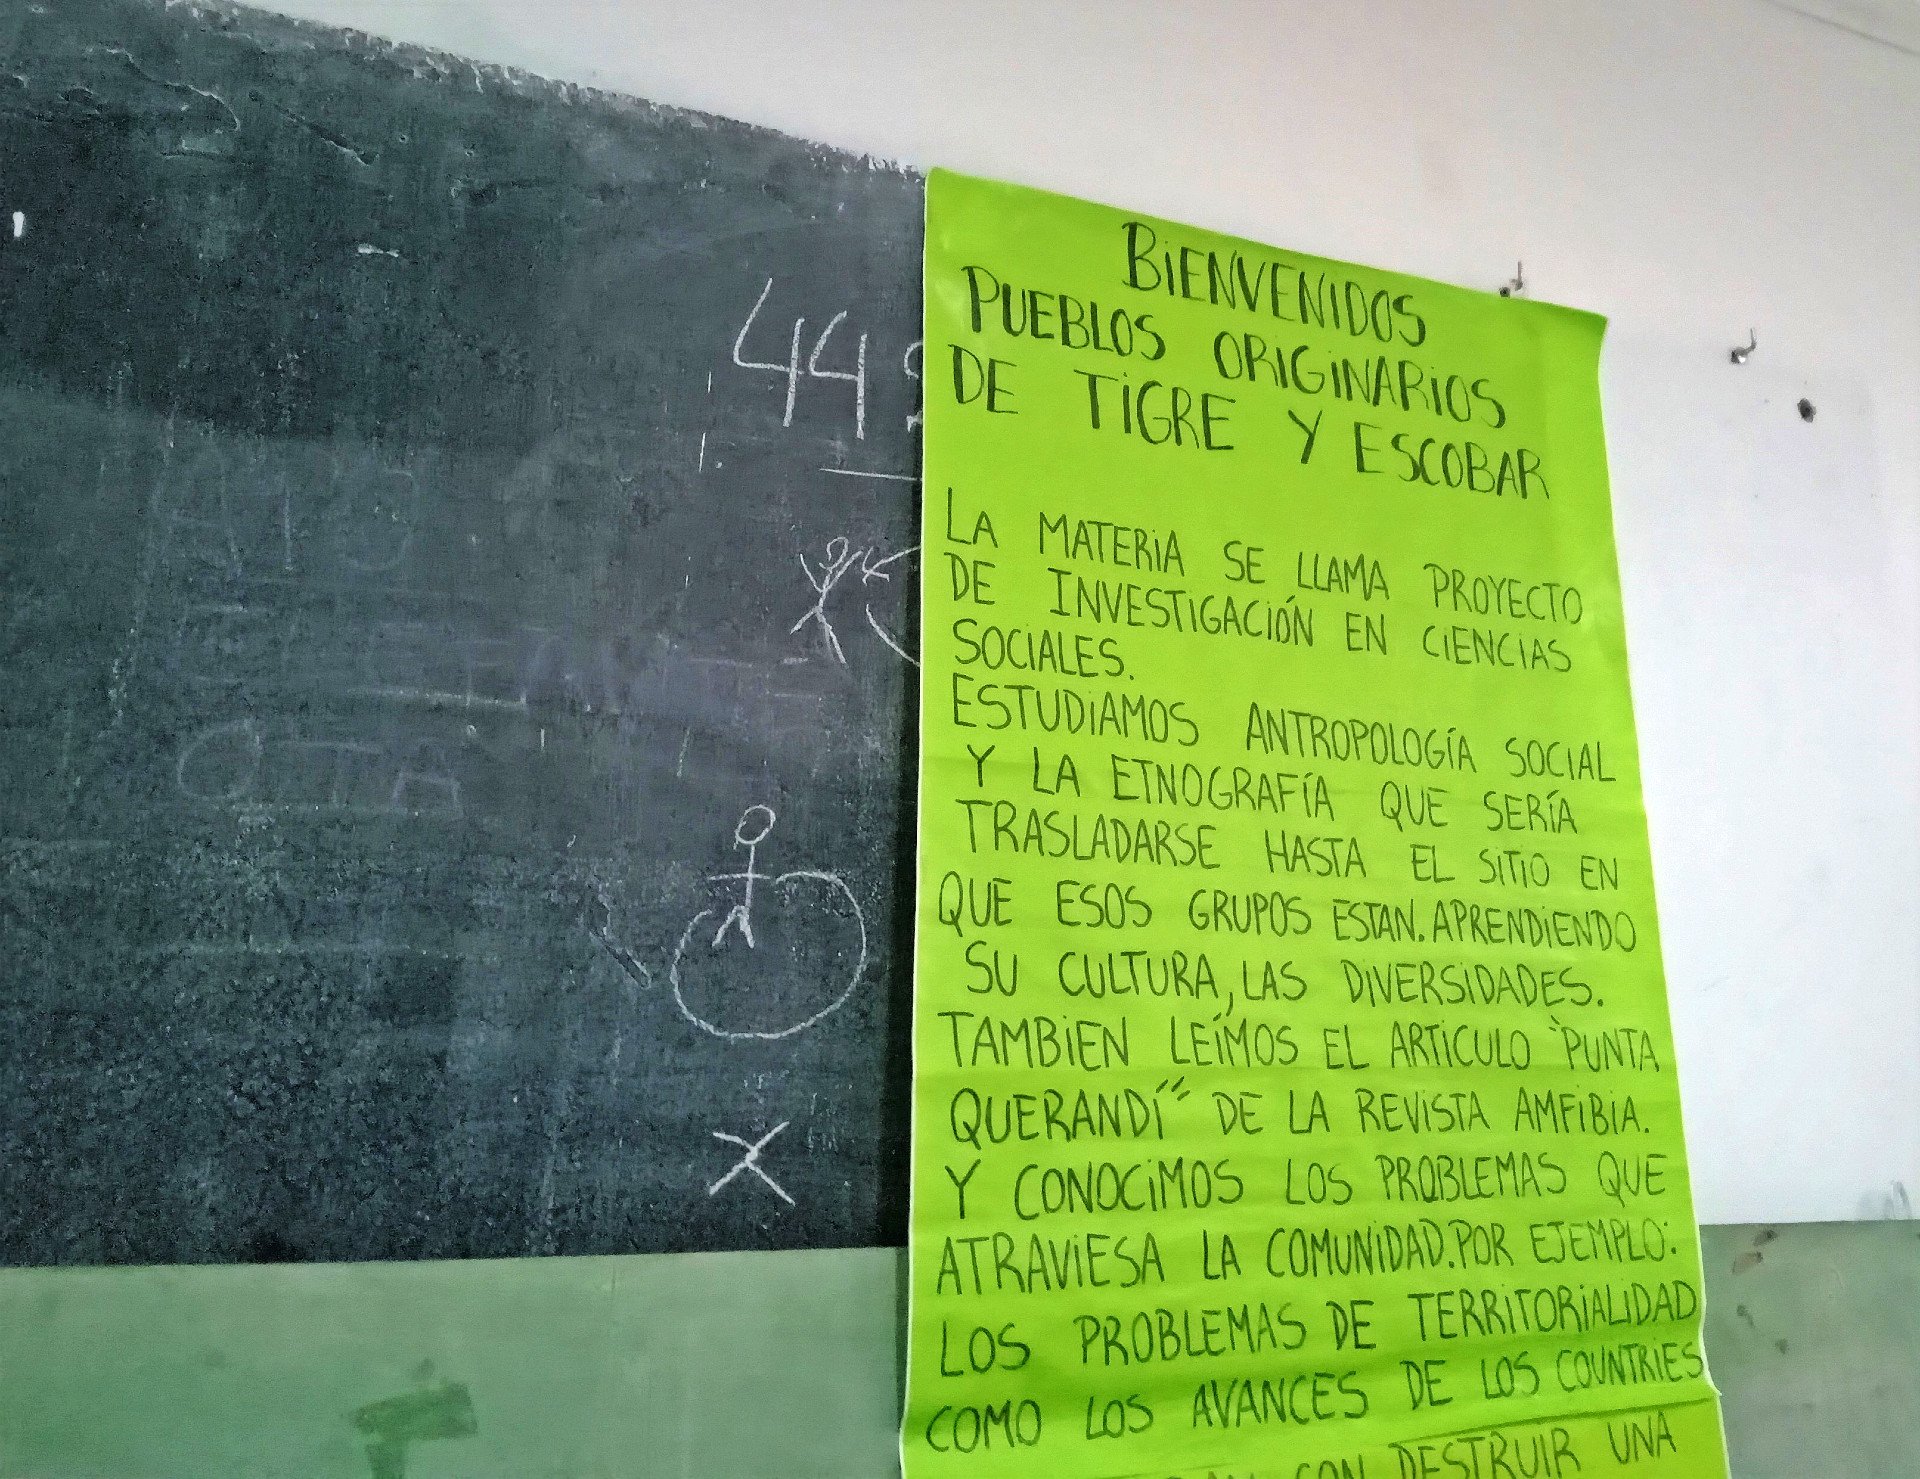 44
BiENVENIDOS
PUEBLOS ORIGINARIOS
DE TIGRE Y ESCOBAR
LA MATERIA SE LLAMA PROYECTO
DE INVESTIGACIÓN EN CIENCIAS
SOCIALES.
ESTUDIAMOS ANTROPOLOGÍA SOCIAL
Y LA ETNOGRAFÍA QUE SERÍA
TRASLADARSE HASTA EL SITIO EN
QUE ESOS GRUPOS ESTAN. APRENDIENDO
SU CULTURA, LAS DIVERSIDADES.
TAMBIEN LEÍMOS EL ARTICULO "PUNTA
QUERANDÍ" DE LA REVISTA AMFIBIA.
Y CONOCIMOS LOS PROBLEMAS QUE
ATRAVIESA LA COMUNIDAD. POR EJEMPLO:
LOS PROBLEMAS DE TERRITORIALIDAD
COMO LOS AVANCES DE LOS COUNTRIES
CON DESTRUIR UNA